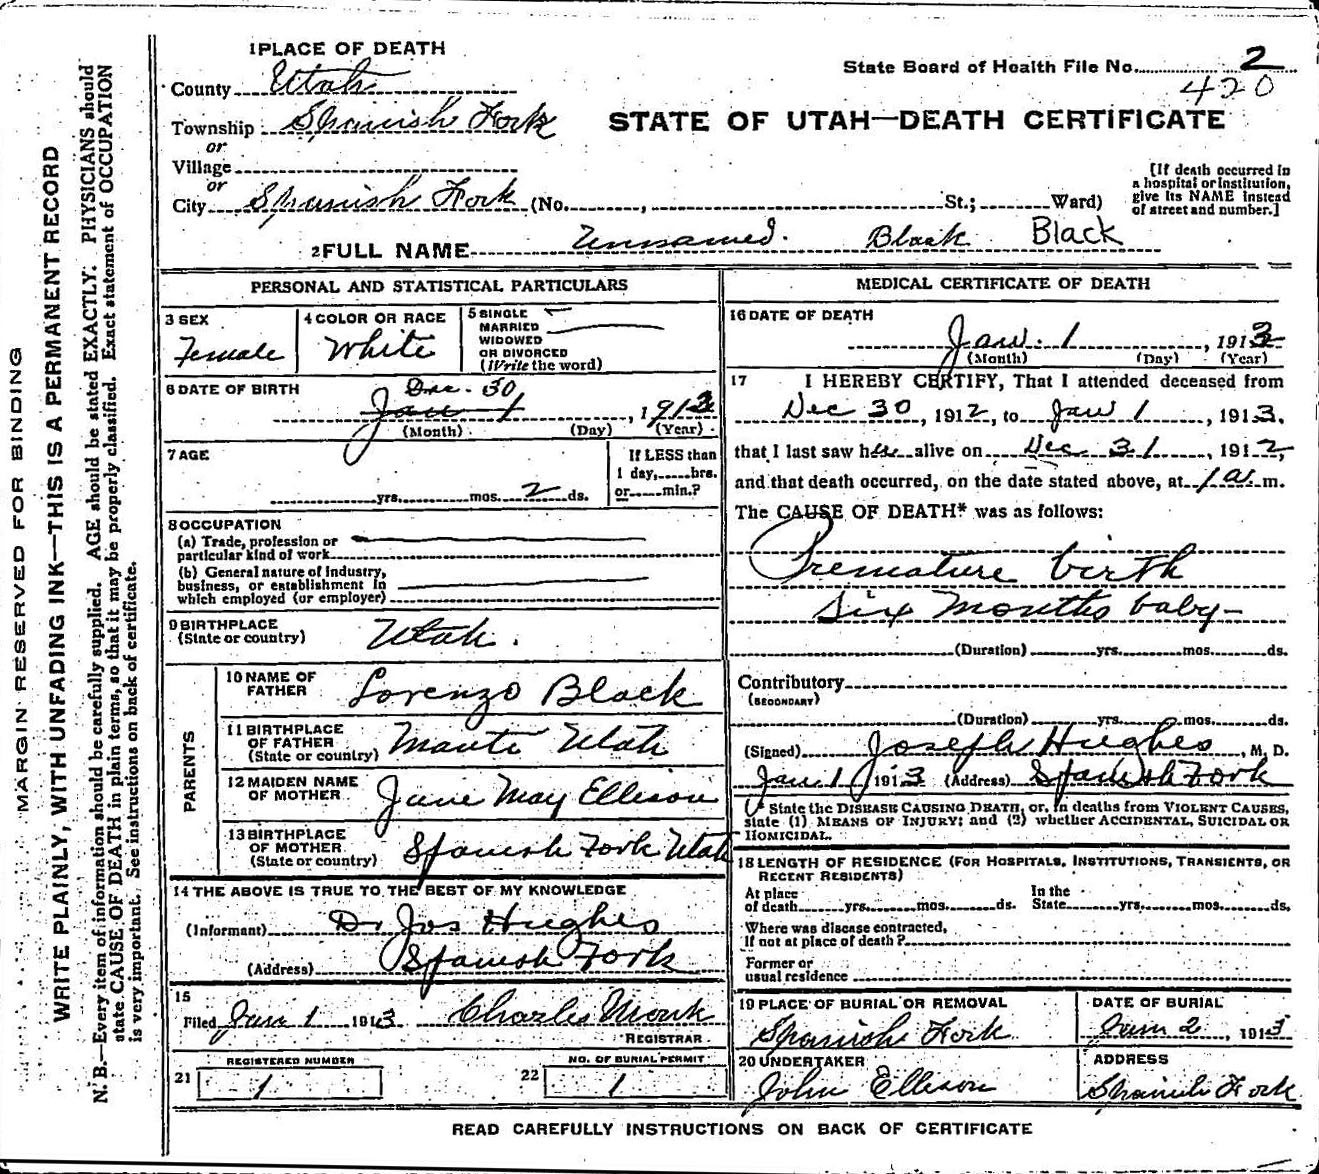 MARGIN RESERVED FOR BINDING
WRITE PLAINLY, WITH UNFADING INK—THIS IS A PERMANENT RECORD
N. B.—Every item of information should be carefully supplied. AGE should be stated EXACTLY. PHYSICIANS should
state CAUSE OF DEATH in plain terms, so that it may be properly classified. Exact statement of OCCUPATION
is very important. See instructions on back of certificate.
1 PLACE OF DEATH
State Board of Health File No. 2
420
County Utah
Township Spanish Fork
STATE OF UTAH—DEATH CERTIFICATE
or
Village
or
City Spanish Fork (No. , St.; Ward)
[If death occurred in
a hospital or institution,
give its NAME instead
of street and number.]
2 FULL NAME Unnamed. Black Black
PERSONAL AND STATISTICAL PARTICULARS
3 SEX
Female
4 COLOR OR RACE
White
5 SINGLE
MARRIED
WIDOWED
OR DIVORCED
(Write the word)
6 DATE OF BIRTH
Dec. 30
Jan 1 , 1912
(Month) (Day) (Year)
7 AGE
yrs. mos. 2 ds.
If LESS than
1 day, hrs.
or min.?
8 OCCUPATION
(a) Trade, profession or
particular kind of work
(b) General nature of industry,
business, or establishment in
which employed (or employer)
9 BIRTHPLACE
(State or country) Utah.
PARENTS
10 NAME OF
FATHER Lorenzo Black
11 BIRTHPLACE
OF FATHER
(State or country) Manti Utah
12 MAIDEN NAME
OF MOTHER Jane May Ellison
13 BIRTHPLACE
OF MOTHER
(State or country) Spanish Fork Utah
14 THE ABOVE IS TRUE TO THE BEST OF MY KNOWLEDGE
(Informant) Dr Jos Hughes
(Address) Spanish Fork
15
Filed Jan 1 1913 Charles Monk
REGISTRAR
REGISTERED NUMBER
21 1
NO. OF BURIAL PERMIT
22 1
MEDICAL CERTIFICATE OF DEATH
16 DATE OF DEATH
Jan. 1 , 1913
(Month) (Day) (Year)
17 I HEREBY CERTIFY, That I attended deceased from
Dec 30 , 1912, to Jan 1 , 1913.
that I last saw her alive on Dec 31 , 1912,
and that death occurred, on the date stated above, at 1 a. m.
The CAUSE OF DEATH* was as follows:
Premature birth
Six months baby—
(Duration) yrs. mos. ds.
Contributory
(SECONDARY)
(Duration) yrs. mos. ds.
(Signed) Joseph Hughes , M. D.
Jan 1 1913 (Address) Spanish Fork
* State the DISEASE CAUSING DEATH, or, in deaths from VIOLENT CAUSES,
state (1) MEANS OF INJURY; and (2) whether ACCIDENTAL, SUICIDAL OR
HOMICIDAL.
18 LENGTH OF RESIDENCE (FOR HOSPITALS, INSTITUTIONS, TRANSIENTS, OR
RECENT RESIDENTS)
At place
of death yrs. mos. ds.
In the
State yrs. mos. ds.
Where was disease contracted,
If not at place of death?
Former or
usual residence
19 PLACE OF BURIAL OR REMOVAL
Spanish Fork
DATE OF BURIAL
Jan 2 , 1913
20 UNDERTAKER
John Ellison
ADDRESS
Spanish Fork
READ CAREFULLY INSTRUCTIONS ON BACK OF CERTIFICATE